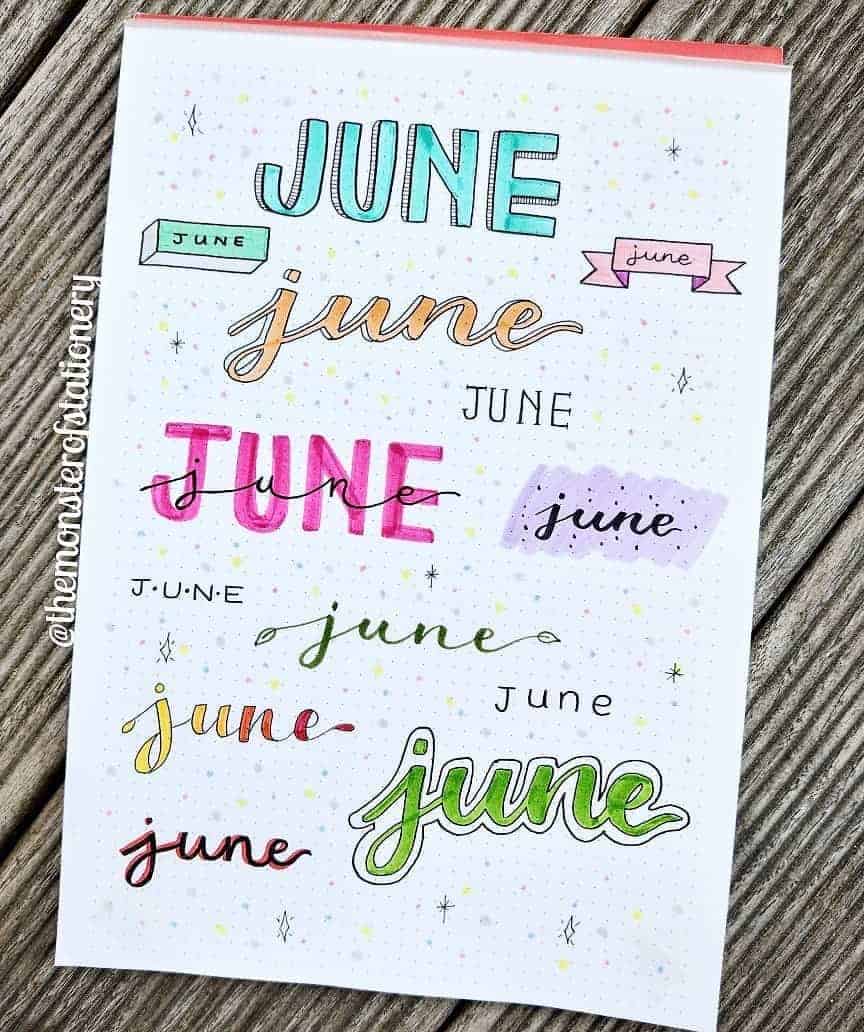 JUNE
JUNE
june
june
JUNE
JUNE
june
june
J·U·N·E
june
June
june
june
june
@themonsterofstationery